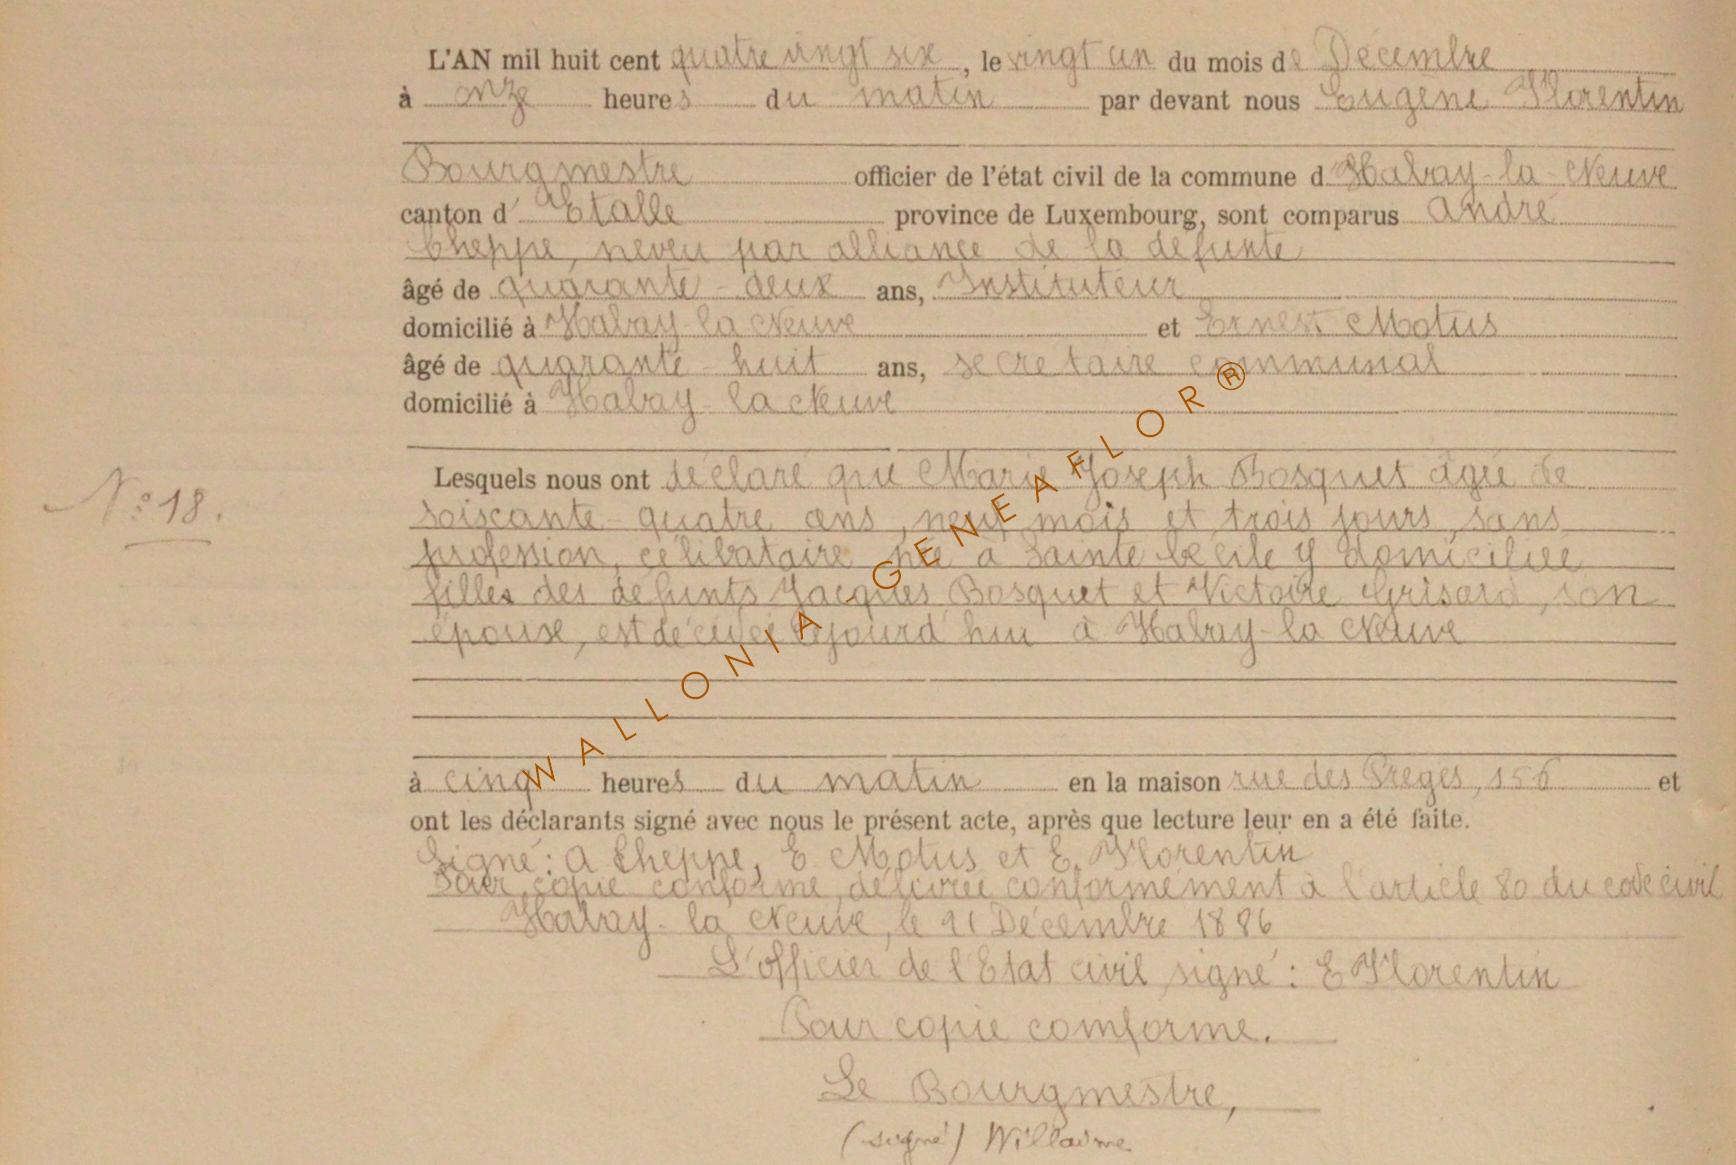 L'AN mil huit cent quatre vingt six, le vingt un du mois de Décembre
à onze heures du matin par devant nous Eugène Florentin
Bourgmestre officier de l'état civil de la commune d'Habay-la-Neuve
canton d'Etalle province de Luxembourg, sont comparus André
Cheppe, neveu par alliance de la défunte
âgé de quarante-deux ans, Instituteur
domicilié à Habay-la Neuve et Ernest Motus
âgé de quarante-huit ans, secrétaire communal
domicilié à Habay-la Neuve
N° 18.
Lesquels nous ont déclaré que Marie Joseph Bosquet âgée de
soixante-quatre ans, neuf mois et trois jours, sans
profession, célibataire née à Sainte Cécile y domiciliée
filles des défunts Jacques Bosquet et Victoire Grisard, son
épouse, est décédée cejourd'hui à Habay-la Neuve
à cinq heures du matin en la maison rue des Preges, 156 et
ont les déclarants signé avec nous le présent acte, après que lecture leur en a été faite.
Signé: A Cheppe, E Motus et E. Florentin
Pour copie conforme délivrée conformément à l'article 80 du code civil
Habay-la Neuve, le 21 Décembre 1886
L'officier de l'Etat civil signé: E Florentin
Pour copie comforme.
Le Bourgmestre,
(signé) Willaime
WALLONIA GENEAFLOR®